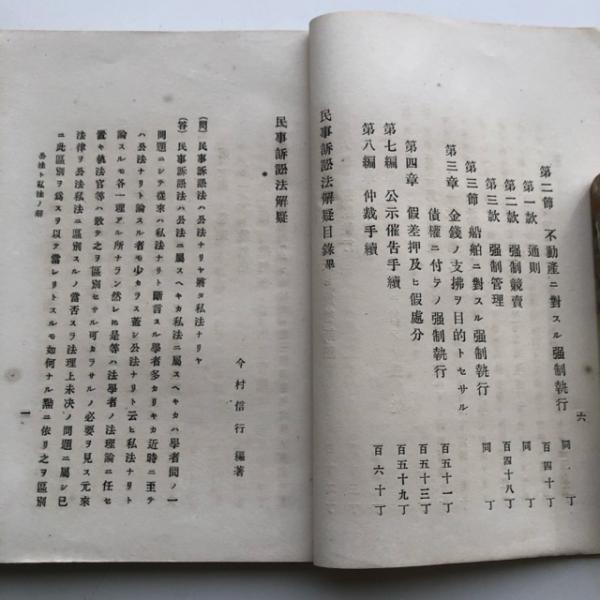 六
第二節 不動產ニ對スル强制執行 同 丁
第一款 通則 百四十丁
第二款 强制競賣 百四十八丁
第三款 强制管理 同 丁
第三節 船舶ニ對スル强制執行
第三章 金錢ノ支拂ヲ目的トセサル
債權ニ付テノ强制執行 百五十一丁
第四章 假差押及ヒ假處分 百五十三丁
第七編 公示催告手續 百五十九丁
第八編 仲裁手續 百六十丁
民事訴訟法解疑目錄畢
民事訴訟法解疑
今村信行 編著
(問) 民事訴訟法ハ公法ナリヤ將タ私法ナリヤ
(答) 民事訴訟法ハ公法ニ屬スヘキカ私法ニ屬スヘキカハ學者間ノ一
問題ニシテ從來ハ私法ナリト斷言スル學者多カリキカ近時ニ至テ
ハ公法ナリト論スル者モ少カラス蓋シ公法ナリト云ヒ私法ナリト
論スルモ各一理アル所ナラン然レ𪜈是等ハ法學者ノ法理論ニ任セ
置キ執法官等ハ敢テ之ヲ區別セサル可カラサルノ必要ヲ見ス元來
法律ヲ公法私法ニ區別スルノ當否スラ法理上未決ノ問題ニ屬シ已
ニ此區別ヲ爲スヲ以テ當レリトスルモ如何ナル點ニ依リ之ヲ區別
公法ト私法ノ
一